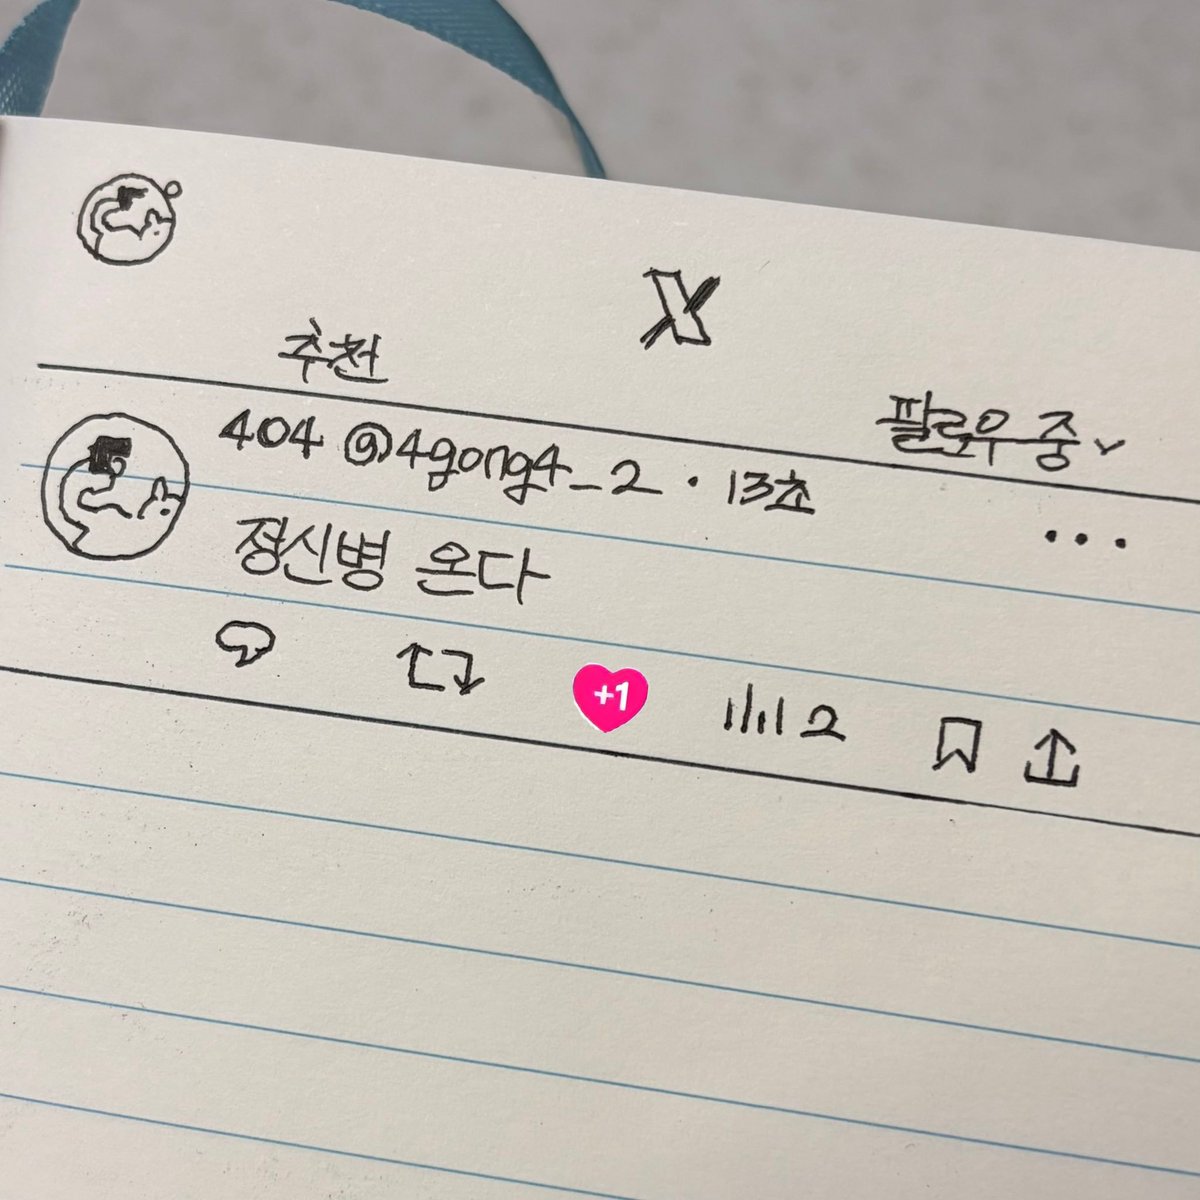 X
추천
팔로우 중
404 @4gong4_2 · 13초
...
정신병 온다
+1
2